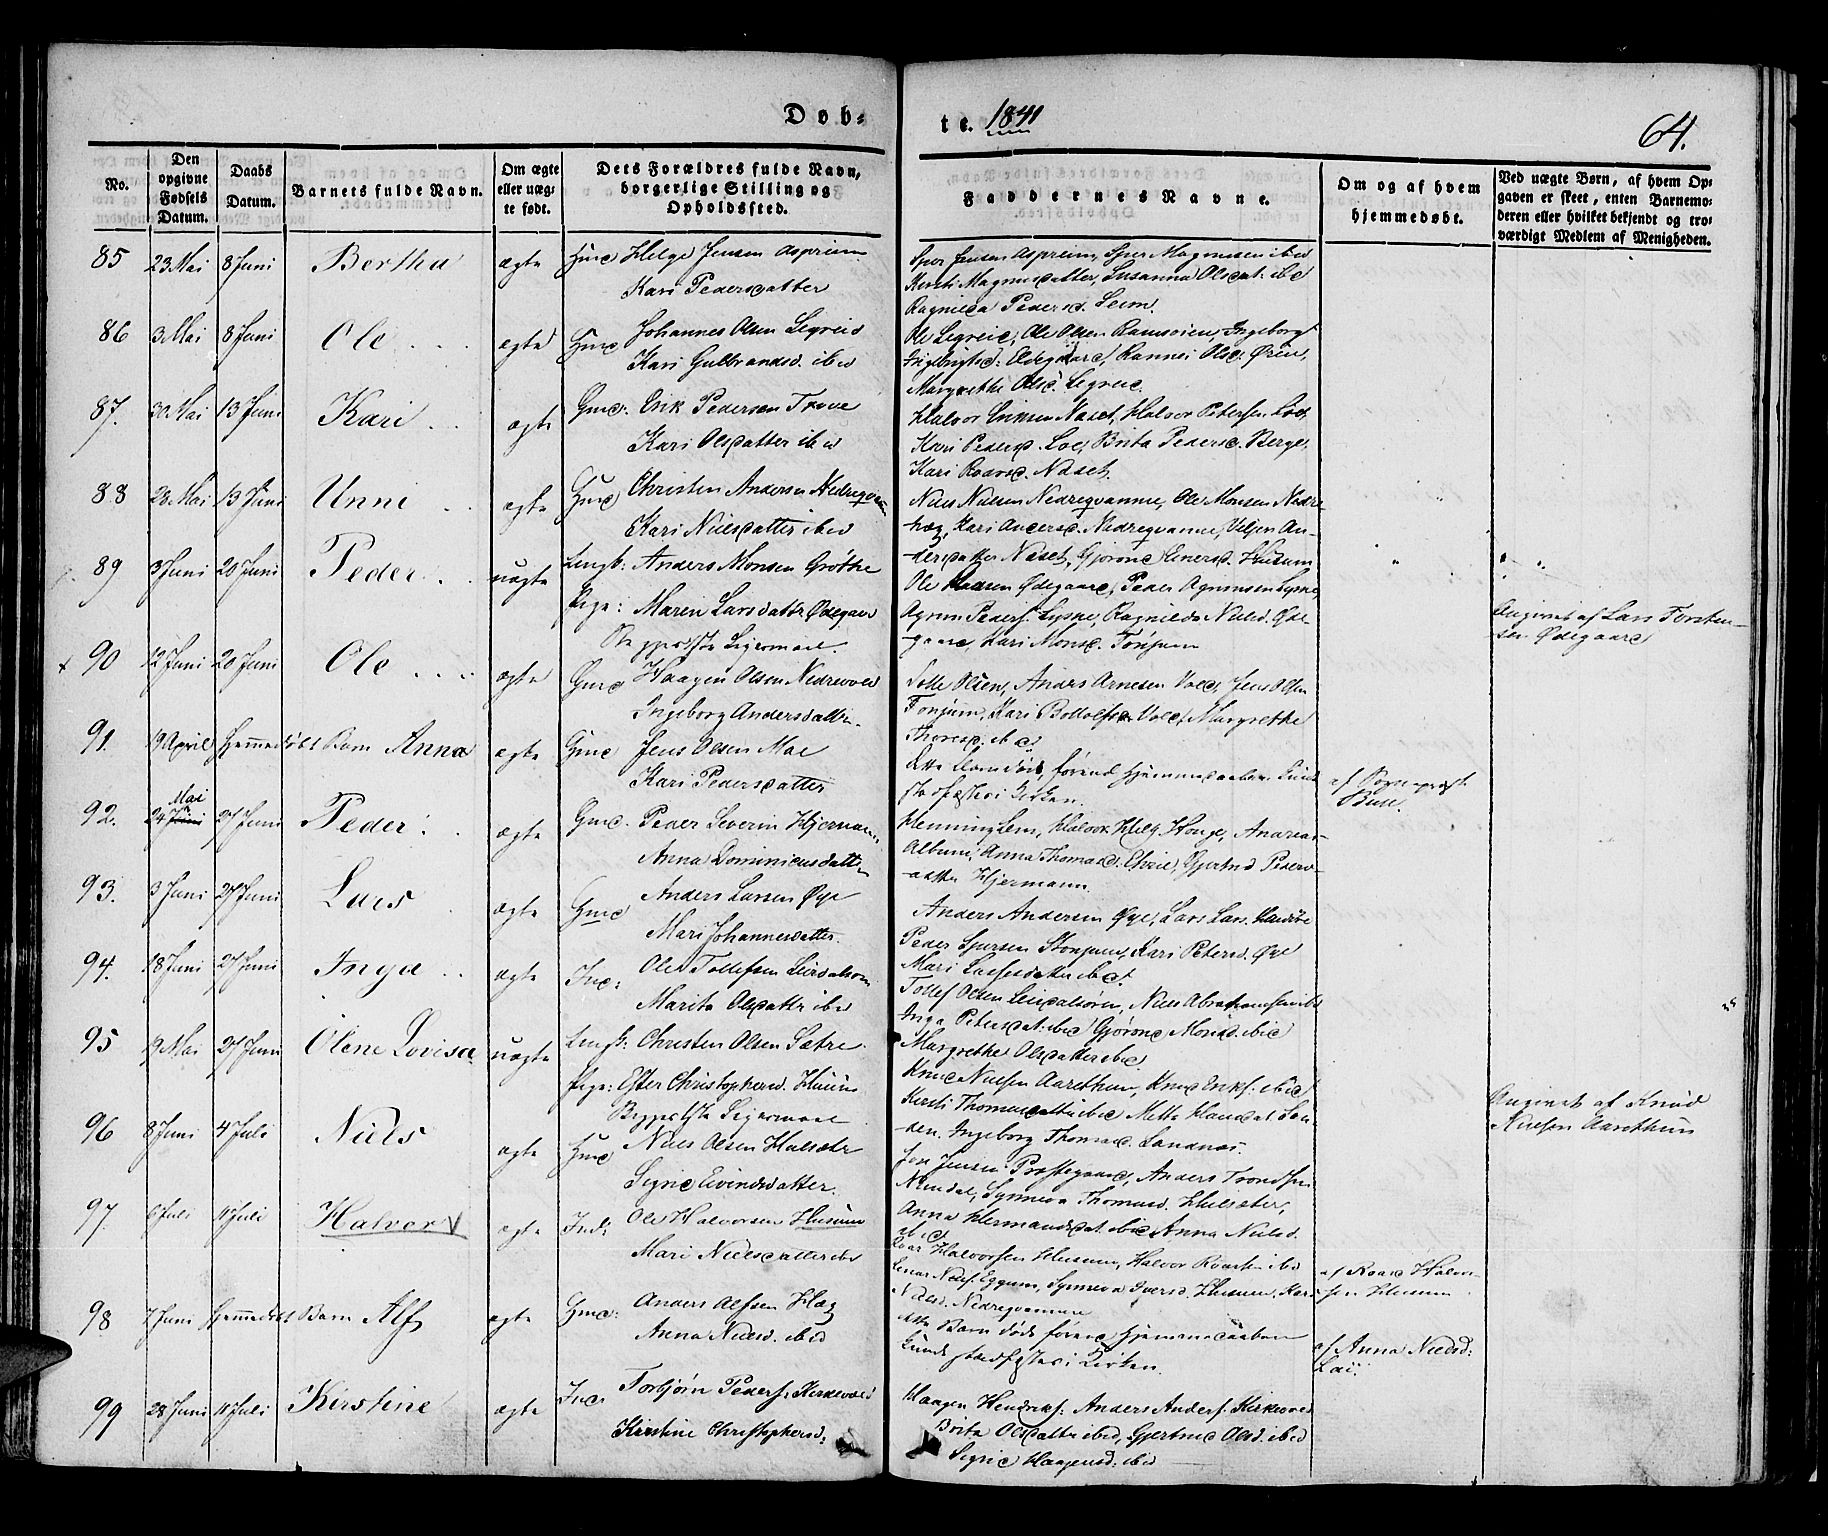 Døb-
te. 1841
64.
No.
Den opgivne Fødsels Datum.
Daabs Datum.
Barnets fulde Navn.
Om ægte eller uæg- te født.
Dets Forældres fulde Navn, borgerlige Stilling og Opholdssted.
Faddernes Navne.
Om og af hvem hjemmedøbt.
Ved uægte Børn, af hvem Op- gaven er skeet, enten Barnemo- deren eller hvilket bekjendt og tro- værdigt Medlem af Menigheden.
85 23 Mai 8 Juni Bertha ægte Gmd Helge Jensen Aspreim
Kari Pedersdatter
Sjur Jensen Aspreim, Sjur Magnusen ibid
Kersti Magnusdatter, Susanna Olsdat: ibd
Ragnilda Pedersd. Seim.
86 3 Mai 8 Juni Ole ægte Gmd Johannes Olsen Legreid
Kari Gulbrandsd. ibid
Ole Legreid, Ole Olsen Ramsøien, Ingeborg
Ingebrigtsd: Ødegaard, Rannei Olsd. Øren,
Margrethe Olsd. Legreid.
87. 30 Mai 13 Juni Kari ægte Gmd: Erik Pedersen Trove
Kari Olsdatter ibid
Halvor Eriksen Naset, Halvor Petersen Loe,
Kari Pedersd. Loe, Brita Pedersd. Berge,
Kari Roarsd. Naset.
88 23 Mai 13 Juni Unni ægte Gmd Christen Andersen Nedreqvamme
Kari Nielsdatter ibid
Niels Nielsen Nedreqvamme, Ole Monsen Nedre
hæg, Kari Andersd. Nedreqvamme, Veljer An-
dersdatter Naset, Gjørond Einersd. Husum
89 3 Juni 20 Juni Peder uægte Ungk: Anders Monsen Grøthe
Pige: Maren Larsdattr Ødegaard
Begges første Leiermaal.
Ole Madsen Ødegaard, Peder Agmunsen Lysne,
Agmun Peders. Lysne, Ragnilda Nielsd. Øde-
gaard, Kari Monsd. Tønjum
Angivet af Lars Torsten-
sen Ødegaard
90 12 Juni 20 Juni Ole ægte Gmd Haagen Olsen Nedrevold
Ingeborg Andersdatter.
Tolle Olsen, Anders Arnesen Vold, Jens Olsen
Tønjum, Kari Botolfsd. Vold, Margrethe
Thoresd. ibid
91. 19 April Hjemmedøbt Barn Anna ægte Gmd Jens Olsen Moe
Kari Pedersdatter
dette Barn døde, førend Hjemmedaaben kunde
stadfæstes i Kirken.
af Sogneprest
Buse.
92. 24 Mai 27 Juni Peder ægte Gmd. Peder Severin Hjermann
Anna Dominicusdatter
Henning Lem, Halvor Helg. Hougе, Andreas
Album, Anna Thomasd: Ehrie, Gjertrud Peders-
datter Hjermann.
93. 3 Juni 27 Juni Lars ægte Gmd Anders Larsen Øye
Mari Johannesdatter.
Anders Andersen Øye, Lars Lars. Hauøie
Peder Sjursen Stønjum, Kari Petersd. Øye
Mari Lassesdatter ibid
94. 18 Juni 27 Juni Inga ægte Ind: Ole Tollefsen Leirdalsøren
Marita Olsdattr ibid
Tollef Olsen Leirdalsøren, Niels Abrahamsen ibid
Inga Petersdat. ibid Gjørond Monsd. ibid
Margrethe Olsdatter ibid
95 19 Mai 27 Juni Olene Lovisa uægte Ungk: Christen Olsen Sætre
Pige: Ester Christophersd. Husum
Begges 1ste Leiermaal
Knud Nielsen Aarethun, Knud Eriks. ibid
Kersti Thomasdattr ibid Mette Hansdat. San-
den, Ingeborg Thomasd. Sandnæs.
Angivet af Knud
Nielsen Aarethun
96 8 Juni 4 Juli Niels ægte Gmd Niels Olsen Hulsætr
Sigrid Eivindsdatter.
Jens Jensen Prestegaard, Anders Trondsen
Nundal, Synneva Thomasd. Hulsæter,
Anna Hermandsdat. ibid Anna Nielsd.
ibid
97. 6 Juli 11 Juli Halvor ægte Ind: Ole Halvorsen Husum
Mari Nielsdatter ibid
Roar Halvorsen Husum, Halvor Roarsen ibid
Einar Niels. Eggum, Synneva Iversd. Husum, Kari
Nielsd. Nedreqvamme
af Roar Halvor-
sen Husum
98 7 Juni Hjemmedøbt Barn Alf ægte Gmd: Anders Alfsen Hæg
Anna Nielsd. ibid
dette Barn døde førend Hjemmedaaben
kunde stadfæstes i Kirken.
af Anna Nielsd:
99 28 Juni 11 Juli Kirstine ægte Ind: Torbjørn Peders: Kirkevold
Kirstine Christophersd:
Haagen Hendriks: Anders Anders. Kirkevold
Brita Olsdattr ibid, Gjertrud Olsd. ibid
Sigrid Haagensd: ibid